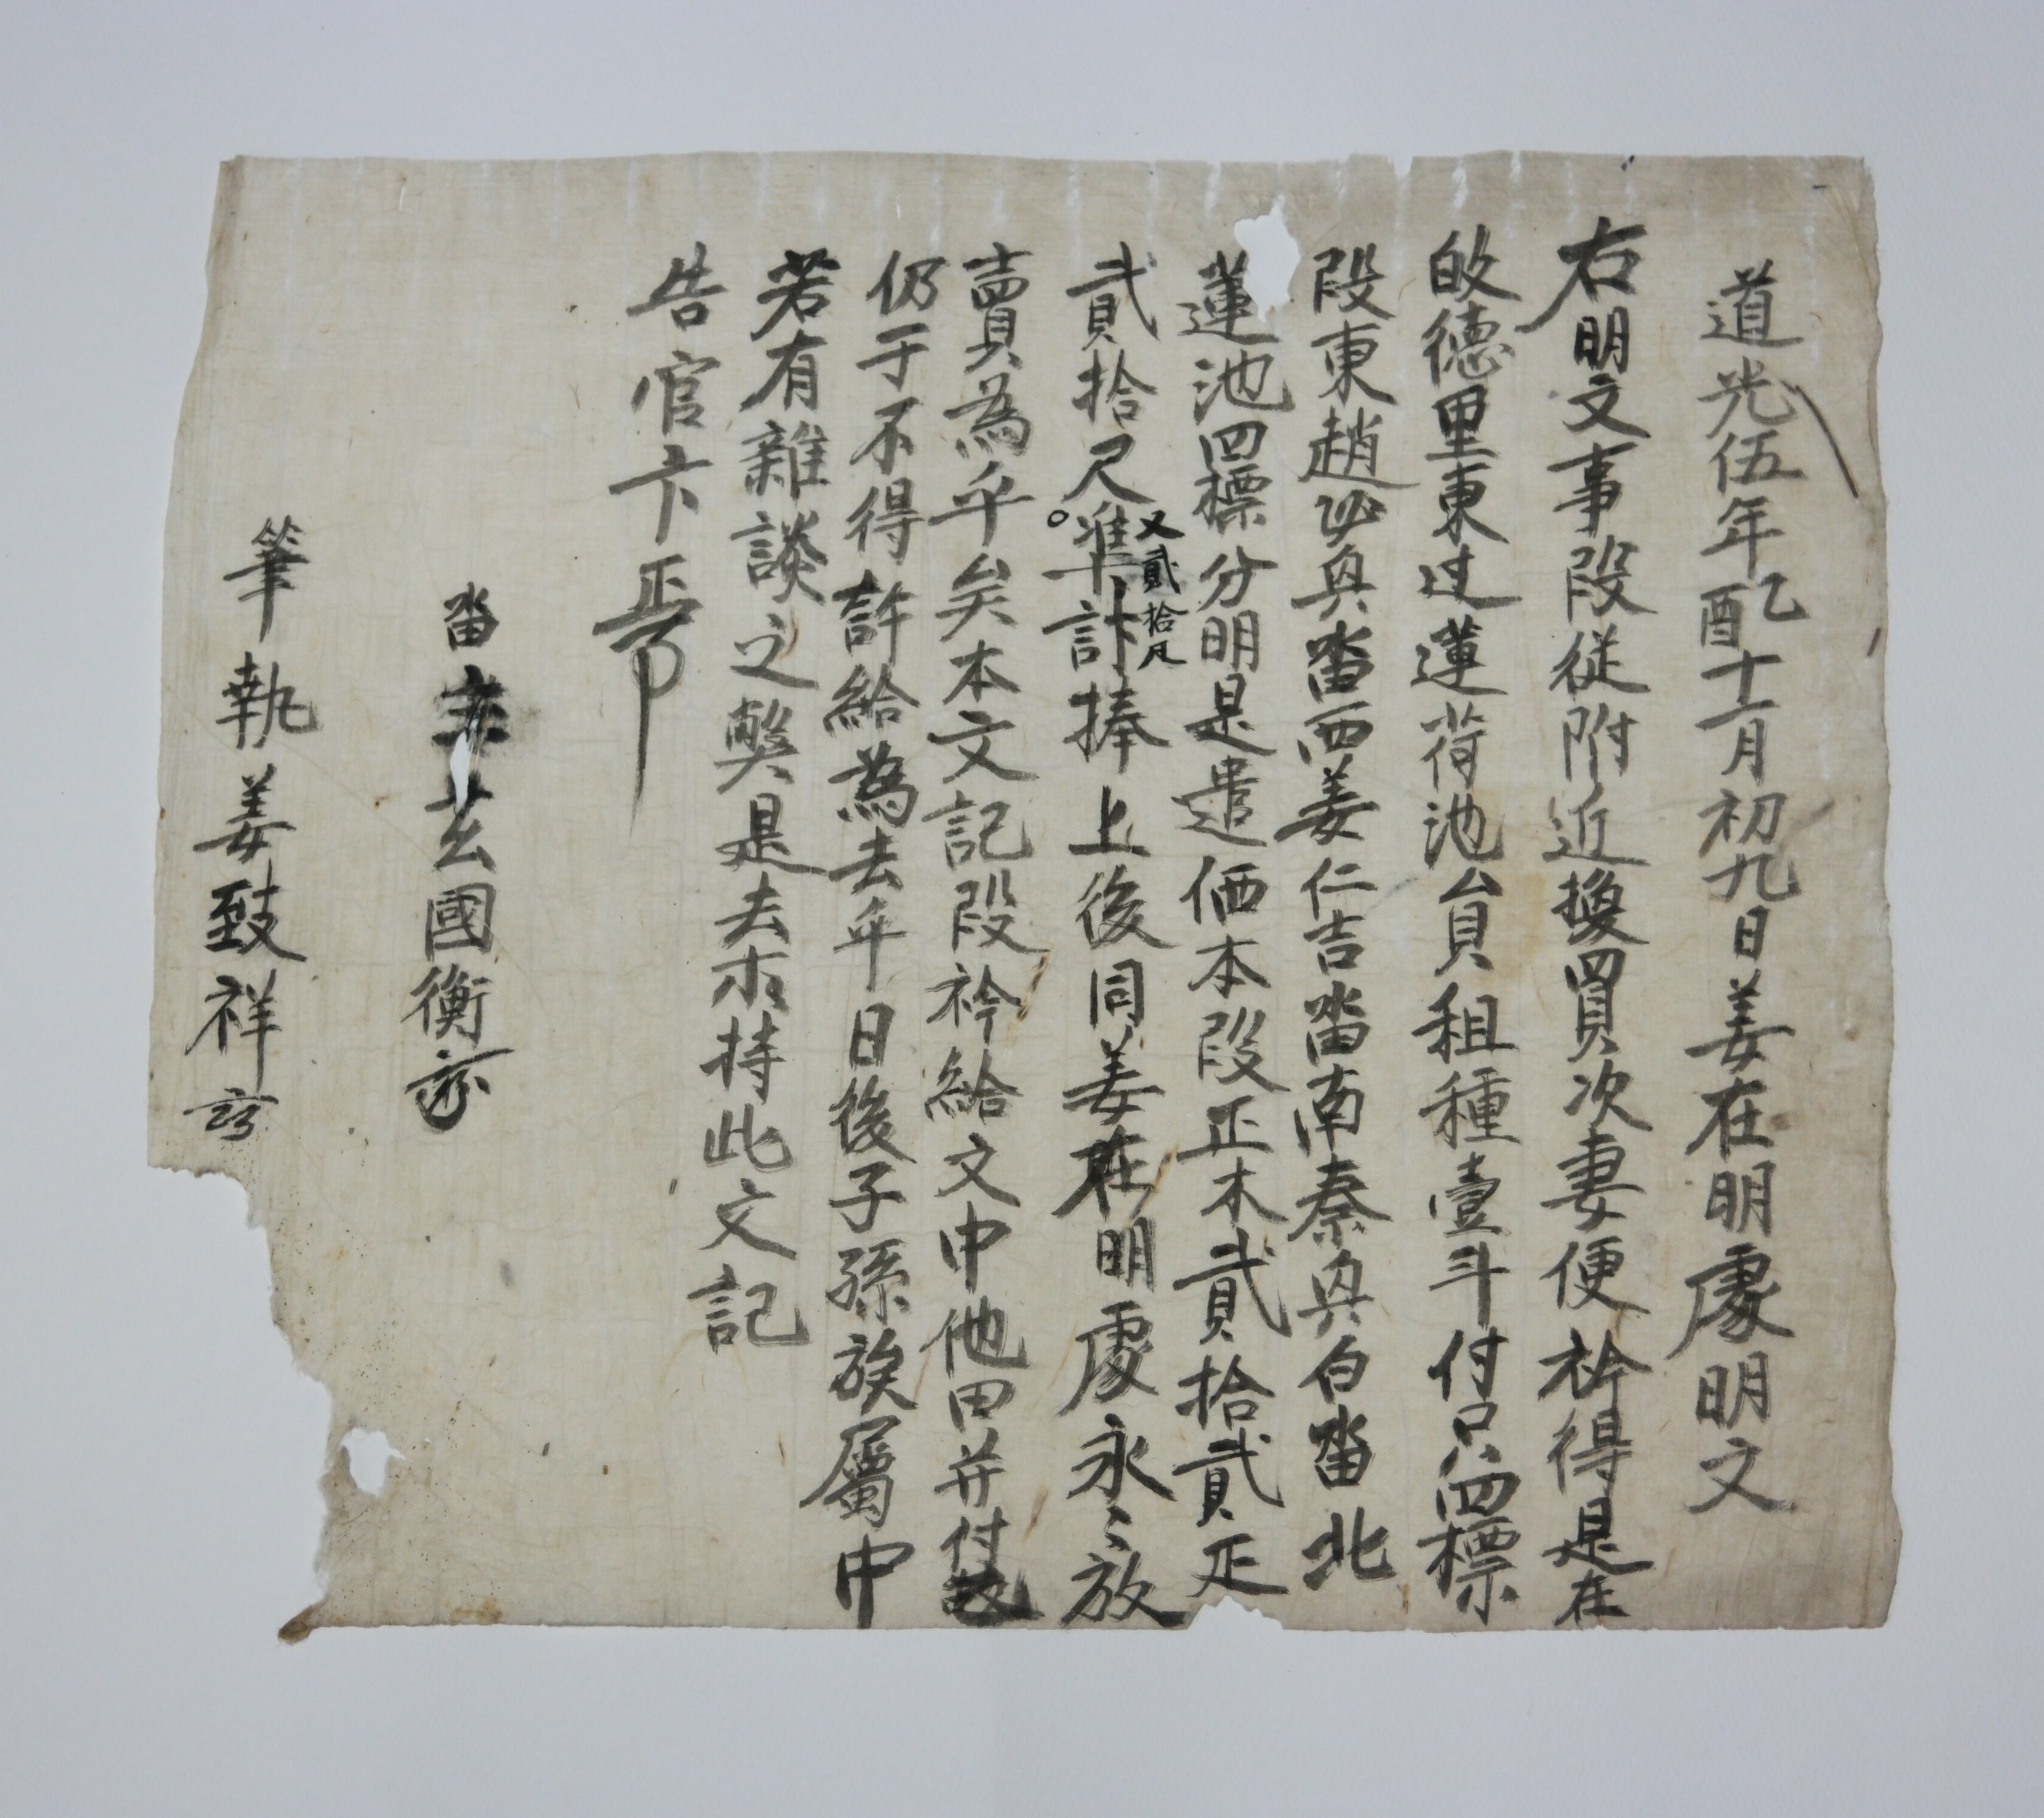 道光伍年乙酉十一月初九日姜在明處明文
右明文事段從附近換買次妻便衿得是在
故德里東过蓮荷池員租種壹斗付只四標
段東趙必與畓西姜仁吉畓南秦與白畓北
蓮池四標分明是遣価本段正木貳拾貳疋
貳拾尺準計捧上後同姜在明處永〻放
又貳拾尺
賣為乎矣本文記段衿給文中他田并付
仍于不得許給為去乎日後子孫族屬中
若有雜談之獘是去木持此文記
告官卞正事
畓主 國衡
筆執姜致祥